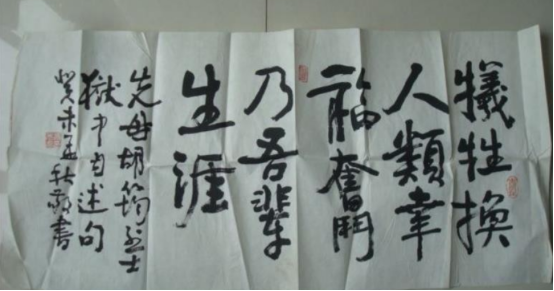 犠牲換
人類幸
福奮鬥
乃吾輩
生涯
先母胡筠烈士
獄中自述句
癸未孟秋 書